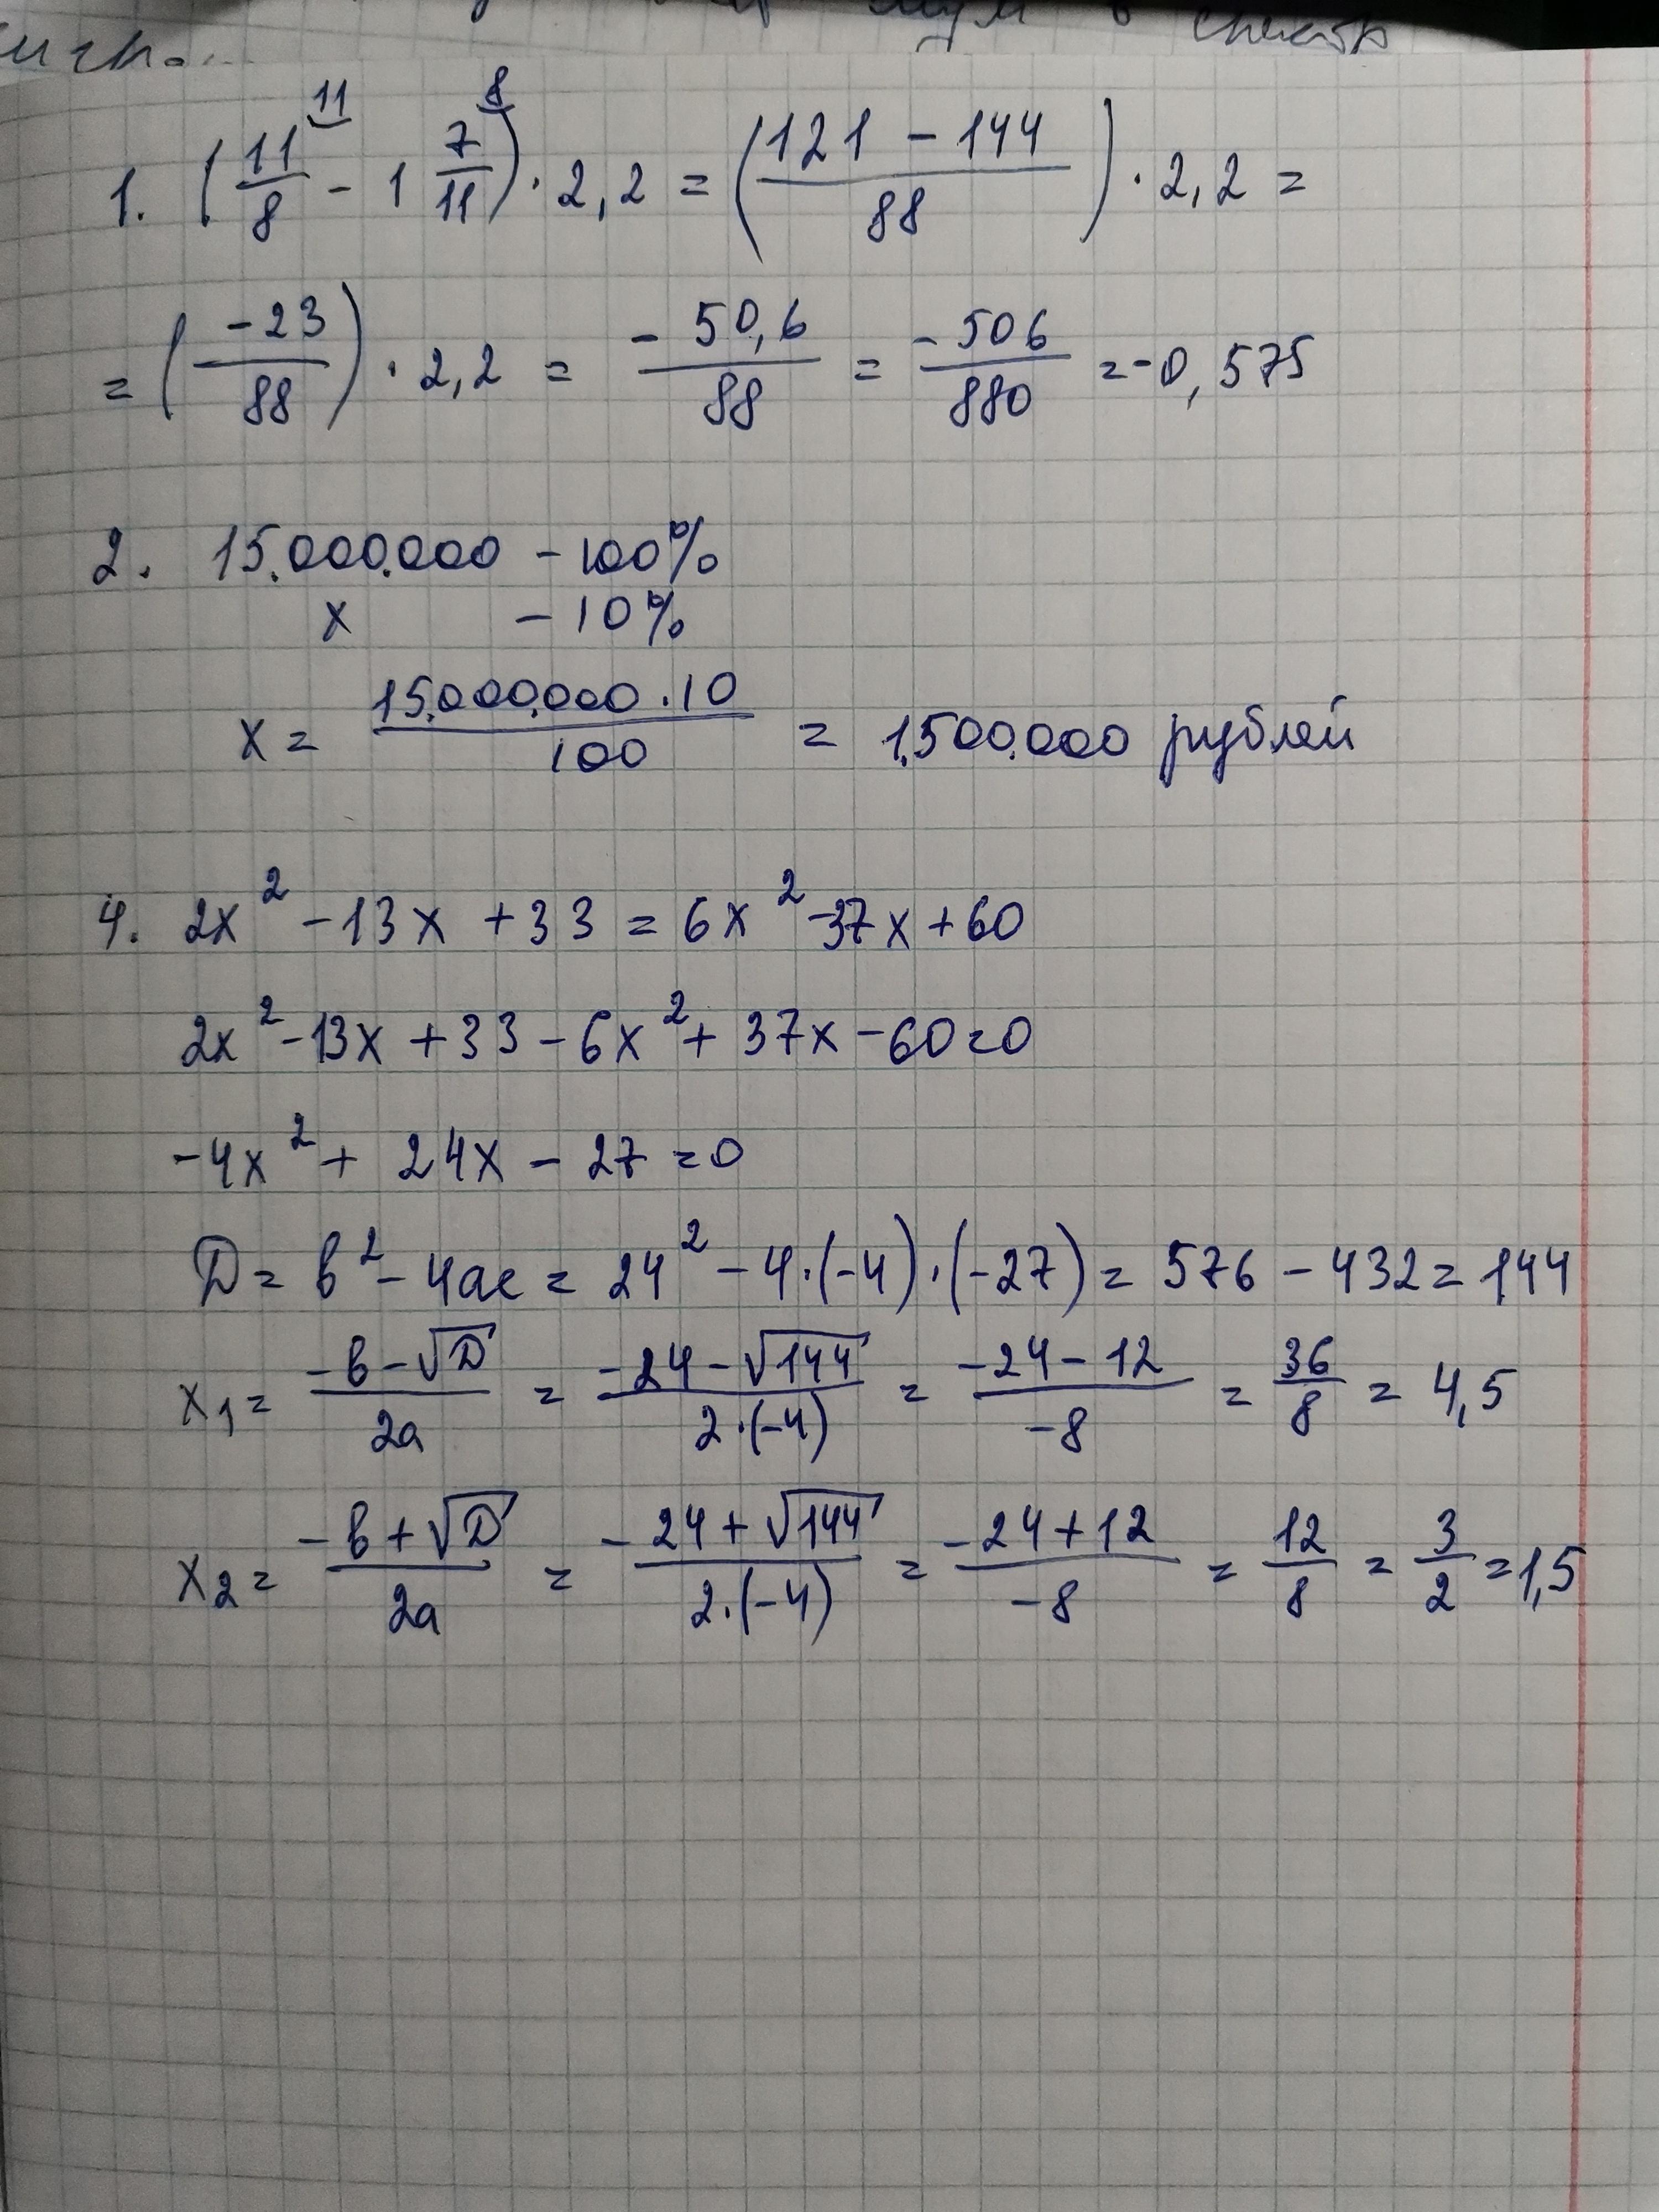 в спектр
1. (11/8 - 1 7/11) · 2,2 = (121 - 144 / 88) · 2,2 =
11 8
= (-23/88) · 2,2 = -50,6/88 = -506/880 = -0,575
2. 15.000.000 - 100%
x - 10%
x = 15.000.000 · 10 / 100 = 1.500.000 рублей
4. 2x² - 13x + 33 = 6x² - 37x + 60
2x² - 13x + 33 - 6x² + 37x - 60 = 0
-4x² + 24x - 27 = 0
D = b² - 4ac = 24² - 4 · (-4) · (-27) = 576 - 432 = 144
x₁ = -b - √D / 2a = -24 - √144 / 2 · (-4) = -24 - 12 / -8 = 36/8 = 4,5
x₂ = -b + √D / 2a = -24 + √144 / 2 · (-4) = -24 + 12 / -8 = 12/8 = 3/2 = 1,5